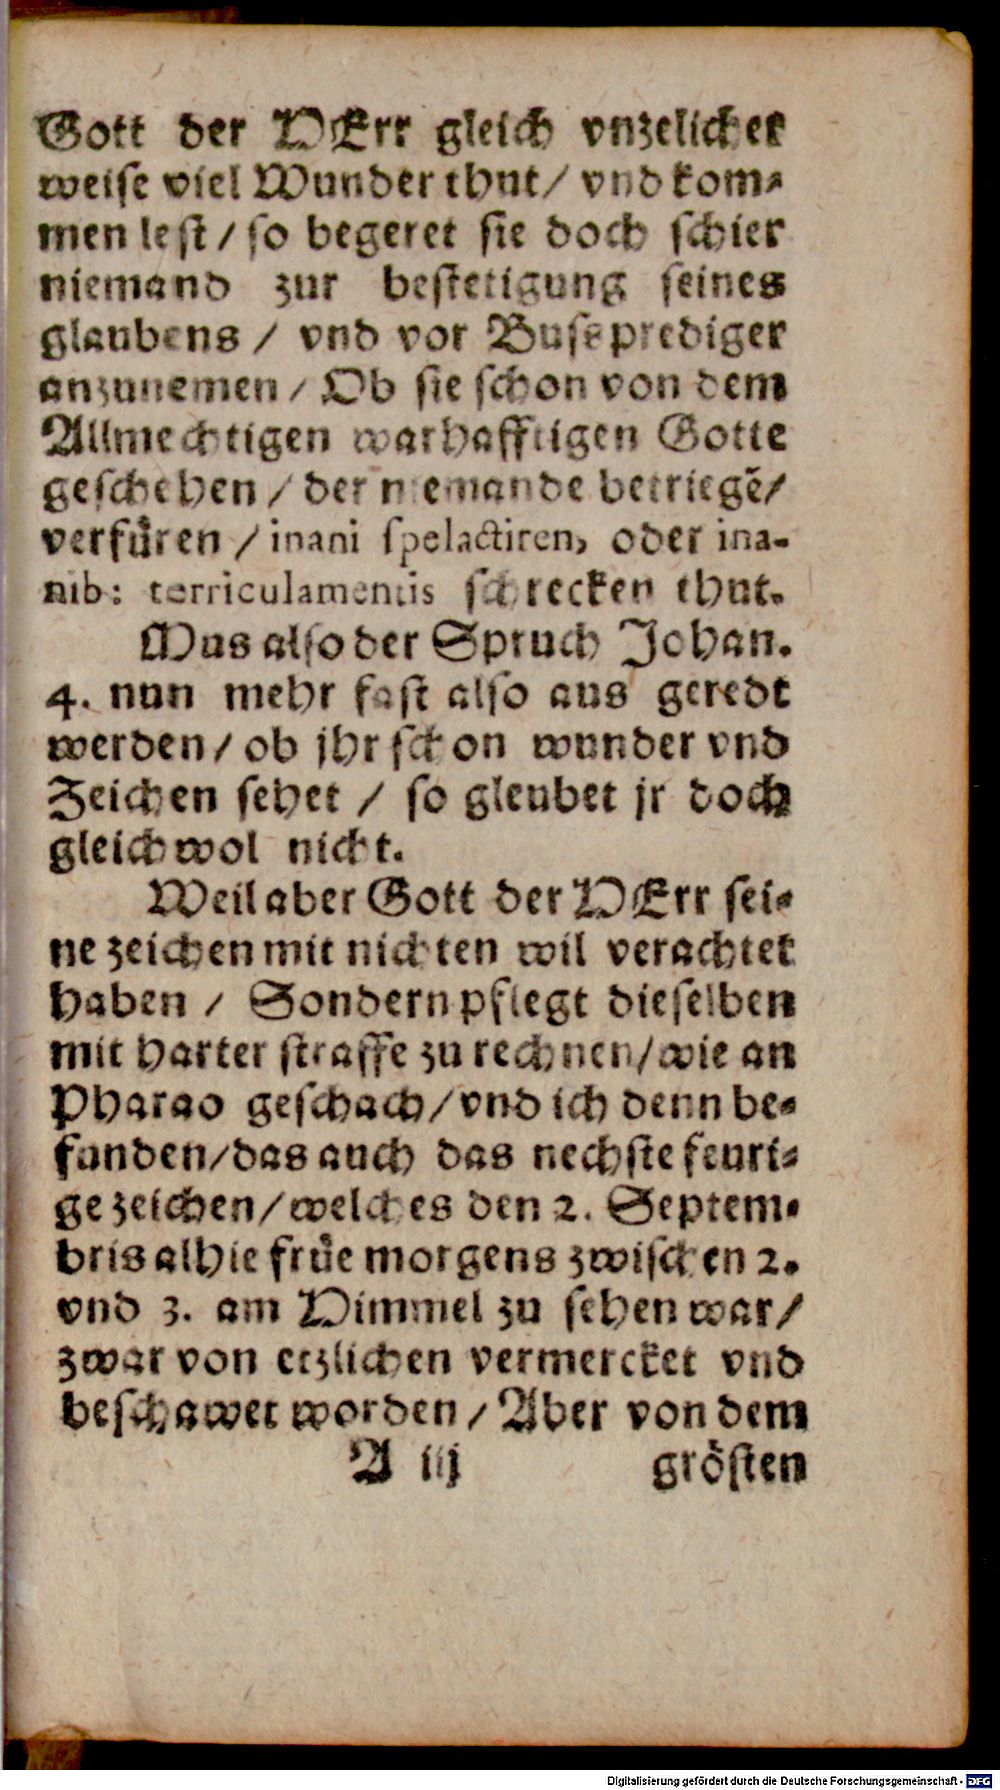 Gott der HErr gleich vnzelicher
weise viel Wunder thut/ vnd kom-
men lest/ so begeret sie doch schier
niemand zur bestetigung seines
glaubens / vnd vor Busprediger
anzunemen / Ob sie schon von dem
Allmechtigen warhafftigen Gotte
geschehen / der niemande betriegē/
verfüren / inani spelactiren, oder ina-
nib: terriculamentis schrecken thut.
Mus also der Spruch Johan.
4. nun mehr fast also aus geredt
werden/ ob jhr schon wunder vnd
Zeichen sehet / so gleubet jr doch
gleichwol nicht.
Weil aber Gott der HErr sei-
ne zeichen mit nichten wil verachtet
haben / Sondern pflegt dieselben
mit harter straffe zu rechnen/wie an
Pharao geschach/vnd ich denn be-
funden/das auch das nechste feuri-
ge zeichen/welches den 2. Septem-
bris alhie früe morgens zwischen 2.
vnd 3. am Himmel zu sehen war/
zwar von etzlichen vermercket vnd
beschawet worden / Aber von dem
A iij grösten
Digitalisierung gefördert durch die Deutsche Forschungsgemeinschaft - DFG